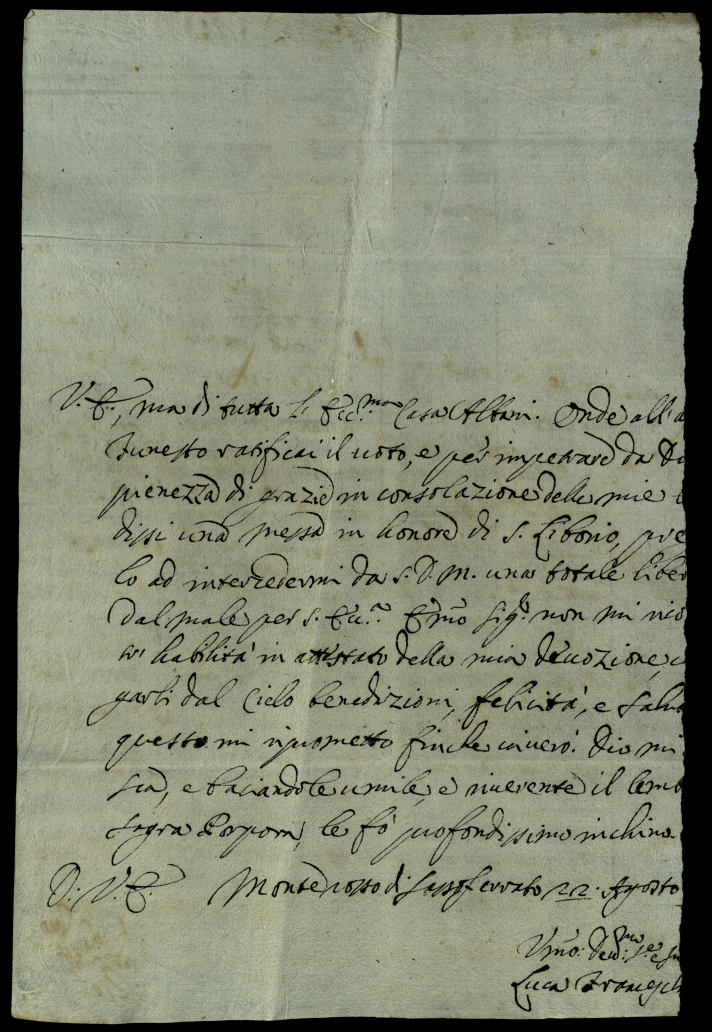 V. E., ma di tutta l' Ecc.ma Casa Albani. Onde all' a
funesto ratificai il uoto, e per impetrare da D
pienezza di grazie in consolazione delle mie
dissi una messa in honore di S. Liborio, pre
lo ad intercedermi da S. D. M. una totale liber
dal male per S. Ecc.a E.mo Sig.r non mi rico
habilità in attestato della mia deuozione,
garli dal Cielo benedizioni, felicità, e salu
questo mi riprometto finche uiuerò. Dio mi
sia, e baciandole umile, e riuerente il lemb
sagra Porpora, le fò profondissimo inchino.
D. V. E. Monterosso di Sassoferrato 22. Agosto
Vmo: Deu.mo
Luca Francesch